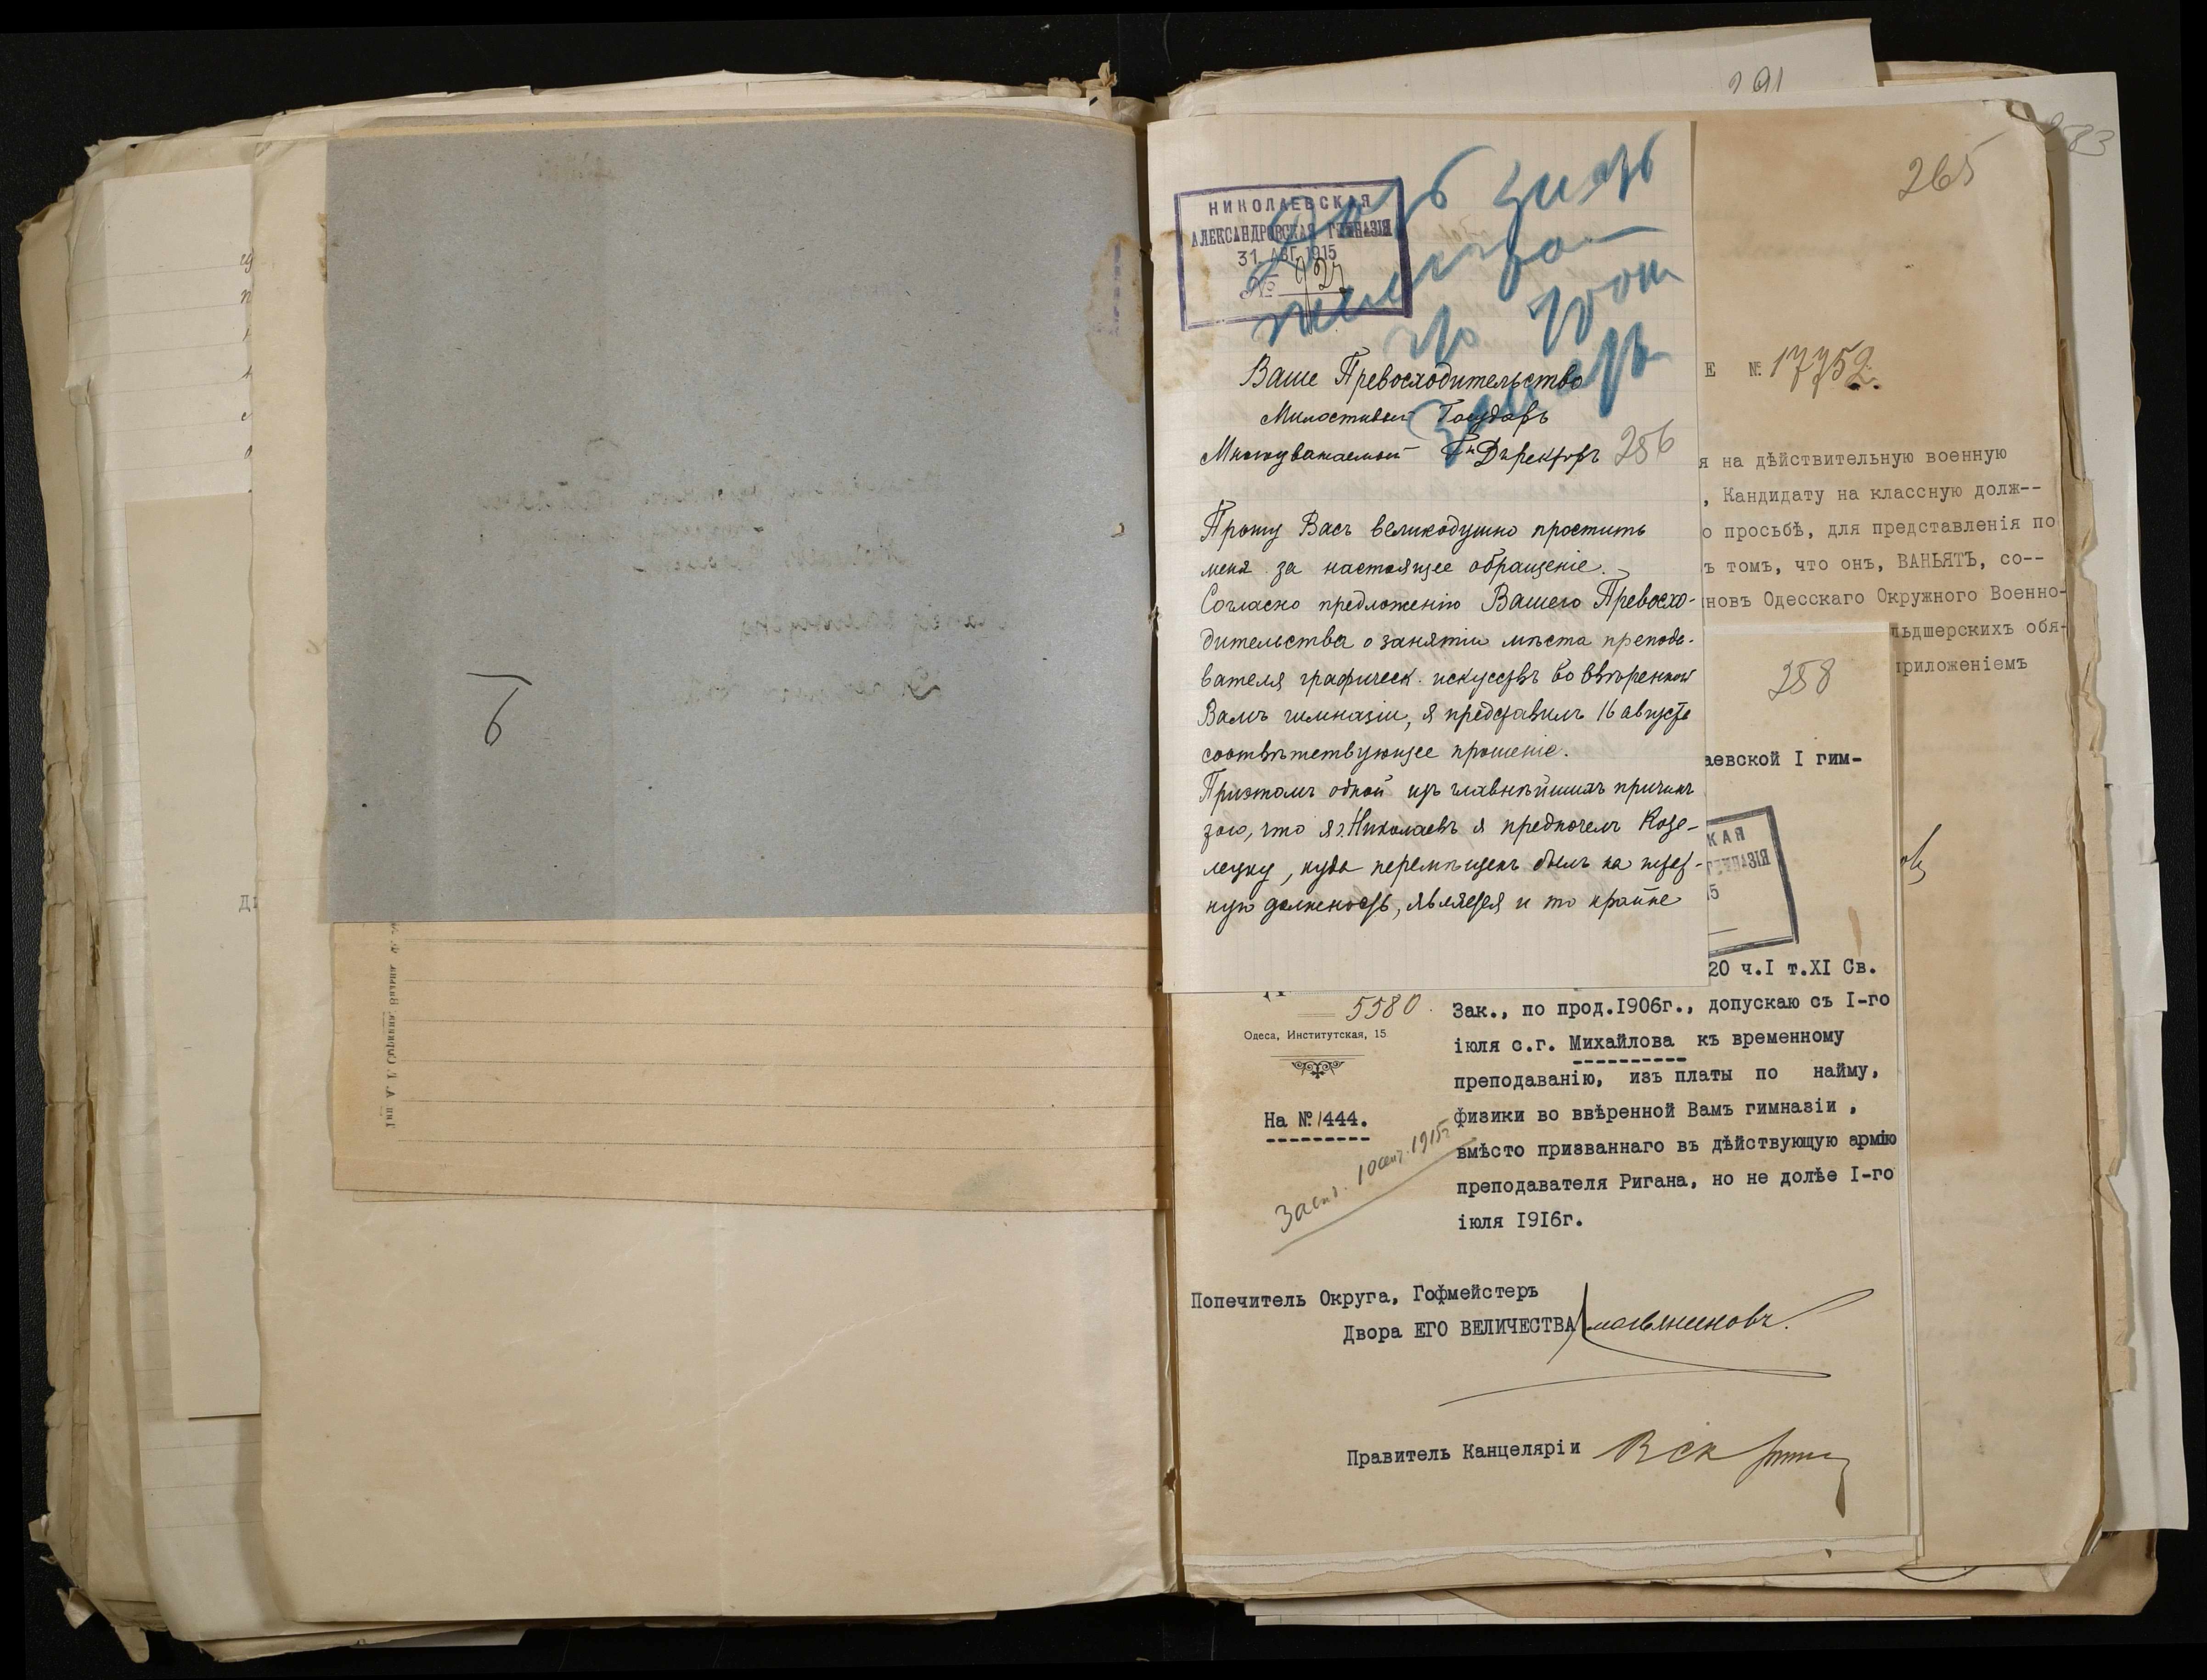 НИКОЛАЕВСКАЯ
АЛЕКСАНДРОВСКАЯ ГИМНАЗІЯ
31 АВГ 1915
№ 927
Ваше Превосходительство
Милостивый Государь
Многоуважаемый Гнъ Директоръ
256
Прошу Васъ великодушно простить
меня за настоящее обращеніе.
Согласно предложенію Вашего Превосхо-
дительства о занятіи мѣста препода-
вателя графическ. искусствъ во ввѣренной
Вамъ гимназіи, я представилъ 16 августа
соотвѣтствующее прошеніе.
Приэтомъ одной изъ главнѣйшихъ причинъ
того, что г. Николаевъ я предпочелъ Козе-
лецку, куда перемѣщенъ былъ на штат-
ную должность, является и то крайне
291
283
265
Е № 17752.
я на дѣйствительную военную
, Кандидату на классную долж--
о просьбѣ, для представленія по
ъ томъ, что онъ, ВАНЬЯТЪ, со--
новъ Одесскаго Окружного Военно-
льдшерскихъ обя-
приложеніемъ
258
аевской I гим-
КАЯ
ГИМНАЗІЯ
5
20 ч.I т.XI Св.
5580.
Одеса, Институтская, 15
На № 1444.
Зак., по прод.1906г., допускаю съ I-го
іюля с.г. Михайлова къ временному
преподаванію, изъ платы по найму,
физики во ввѣренной Вамъ гимназіи ,
вмѣсто призваннаго въ дѣйствующую армію
преподавателя Ригана, но не долѣе I-го
іюля I9I6г.
10 сент. 1915г
Попечитель Округа, Гофмейстеръ
Двора ЕГО ВЕЛИЧЕСТВА
Смольяниновъ.
Правитель Канцеляріи